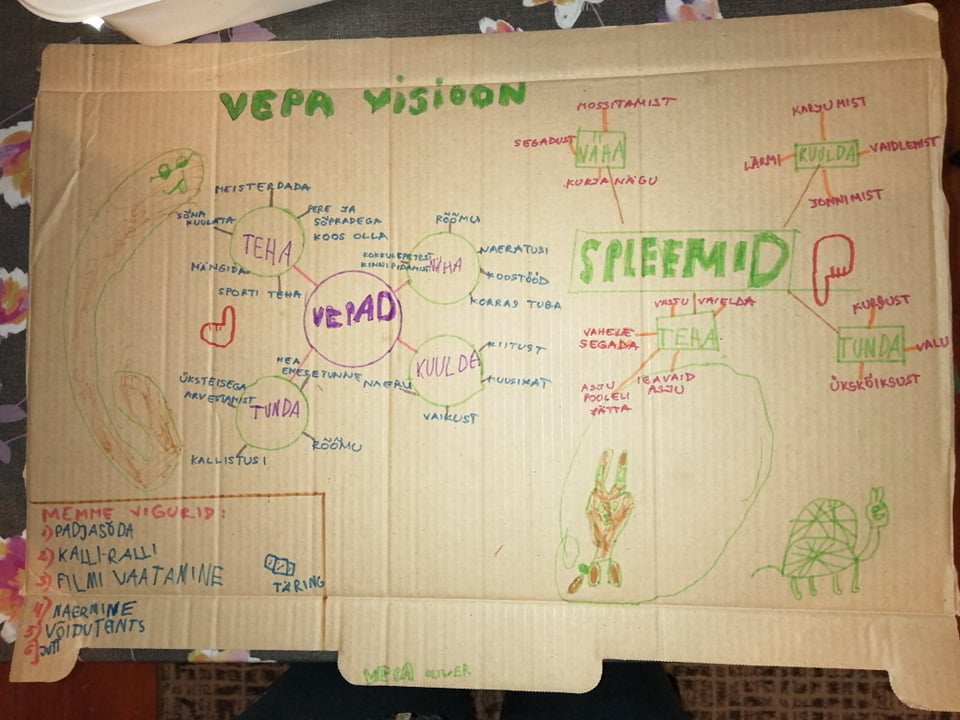 VEPA VISIOON
MEISTERDADA
SÕNA
KUULATA
PERE JA
SÕPRADEGA
KOOS OLLA
TEHA
MÄNGIDA
SPORTI TEHA
VEPAD
RÕÕMU
KOKKULEPETEST
KINNIPIDAMIST
NÄHA
NAERATUSI
KOOSTÖÖD
KORRAS TUBA
KUULDA
KIITUST
MUUSIKAT
VAIKUST
NAERU
HEA
ENESETUNNE
ÜKSTEISEGA
ARVESTAMIST
TUNDA
RÕÕMU
KALLISTUSI
MOSSITAMIST
SEGADUST
NÄHA
KURJA NÄGU
KARJUMIST
LÄRMI
KUULDA
VAIDLEMIST
JONNIMIST
SPLEEMID
VASTU VAIELDA
VAHELE
SEGADA
TEHA
ASJU
POOLELI
JÄTTA
IGAVAID
ASJU
KURBUST
TUNDA
VALU
ÜKSKÕIKSUST
MEMME VIGURID:
1) PADJASÕDA
2) KALLI-RALLI
3) FILMI VAATAMINE
4) NAERMINE
5) VÕIDUTANTS
6) JUTT
TÄRING
VEPA OLIVER